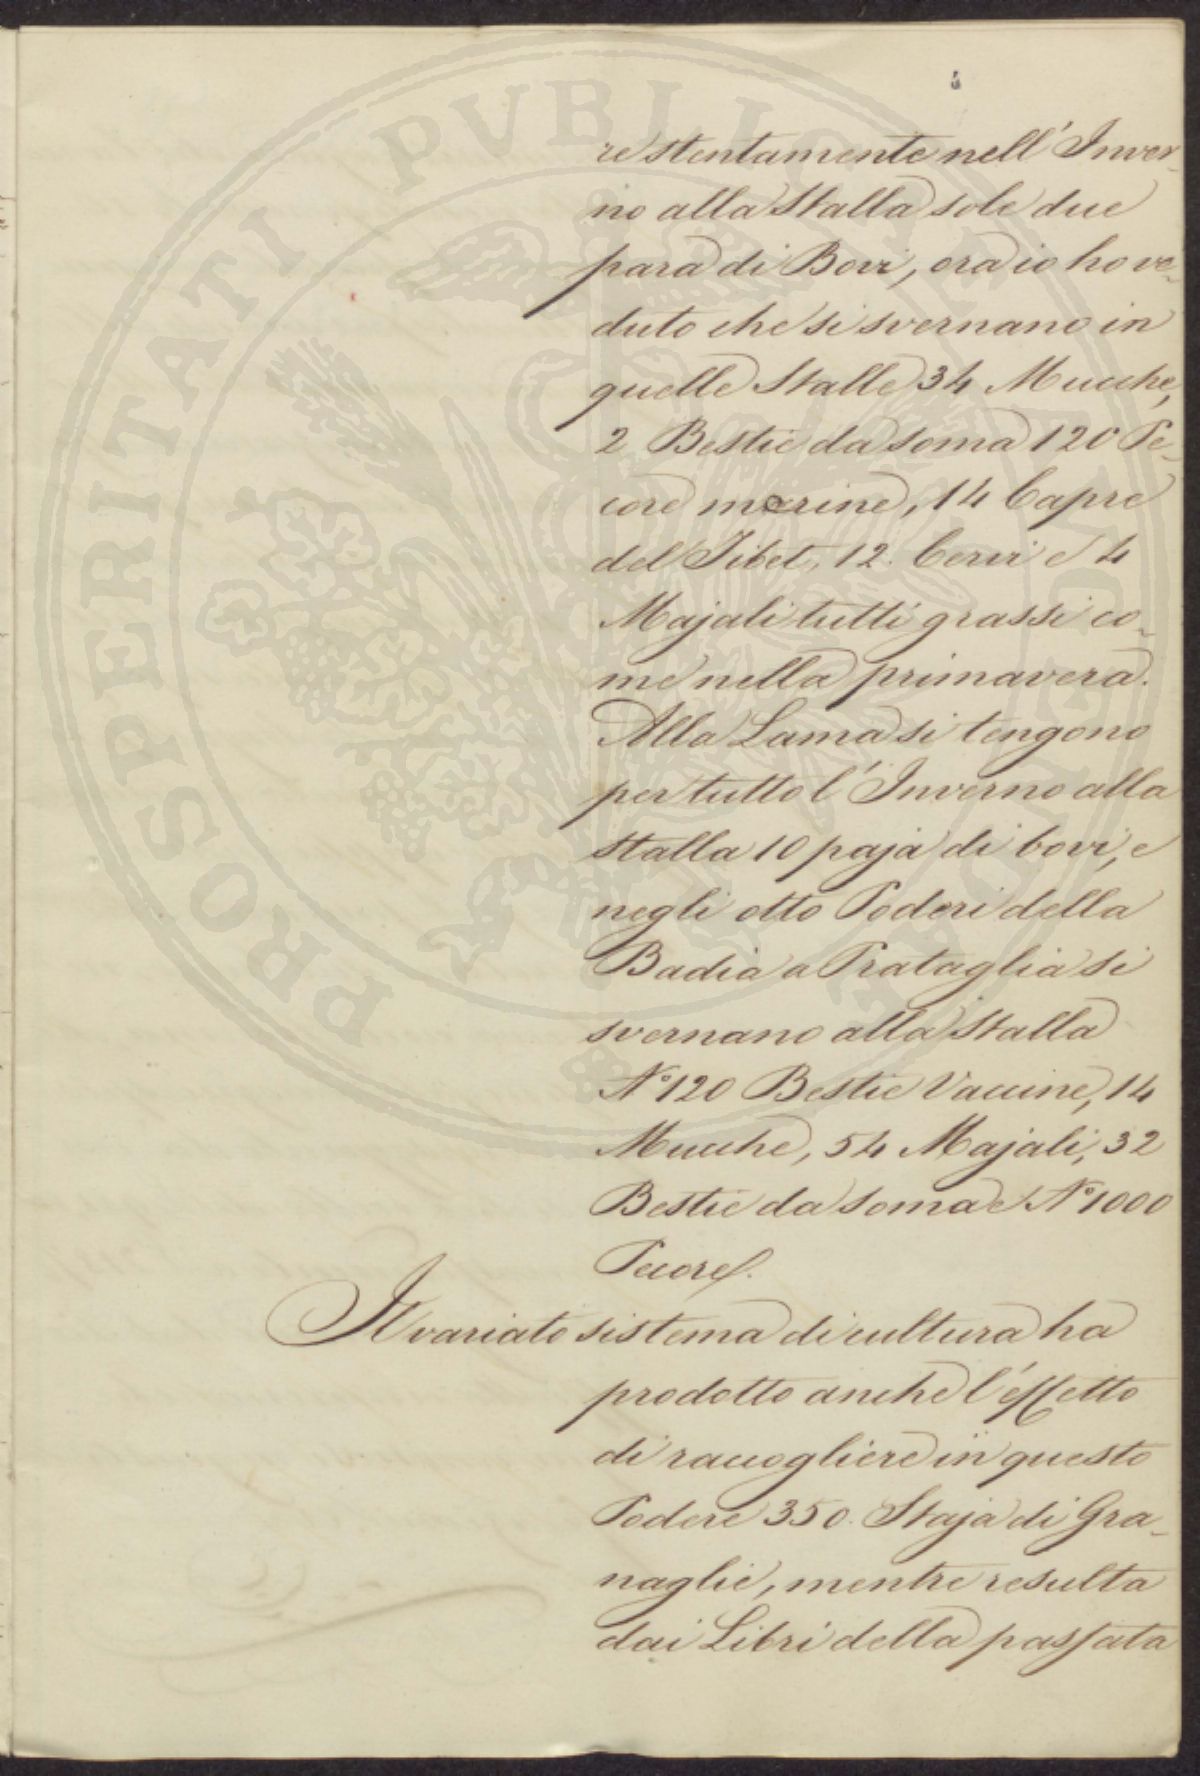 re stentamente nell'Inver-
no alla Stalla sole due
para di Bovi, ora io ho ve-
duto che si svernano in
quelle Stalle 34 Mucche,
2 Bestie da soma 120 Pe-
core merine, 14 Capre
del Tibet, 12. Cervi e 4
Majali tutti grassi co-
me nella primavera.
Alla Lama si tengono
per tutto l'Inverno alla
stalla 10 paja di bovi, e
negli otto Poderi della
Badia a Prataglia si
svernano alla Stalla
N° 120 Bestie Vaccine, 14
Mucche, 54 Majali, 32
Bestie da soma e N° 1000
Pecore.
Il variato sistema di cultura ha
prodotto anche l'effetto
di raccogliere in questo
Podere 350. Staja di Gra-
naglie, mentre resulta
dai Libri della passata
PROSPERITATI PVBLICAE AVGENDAE